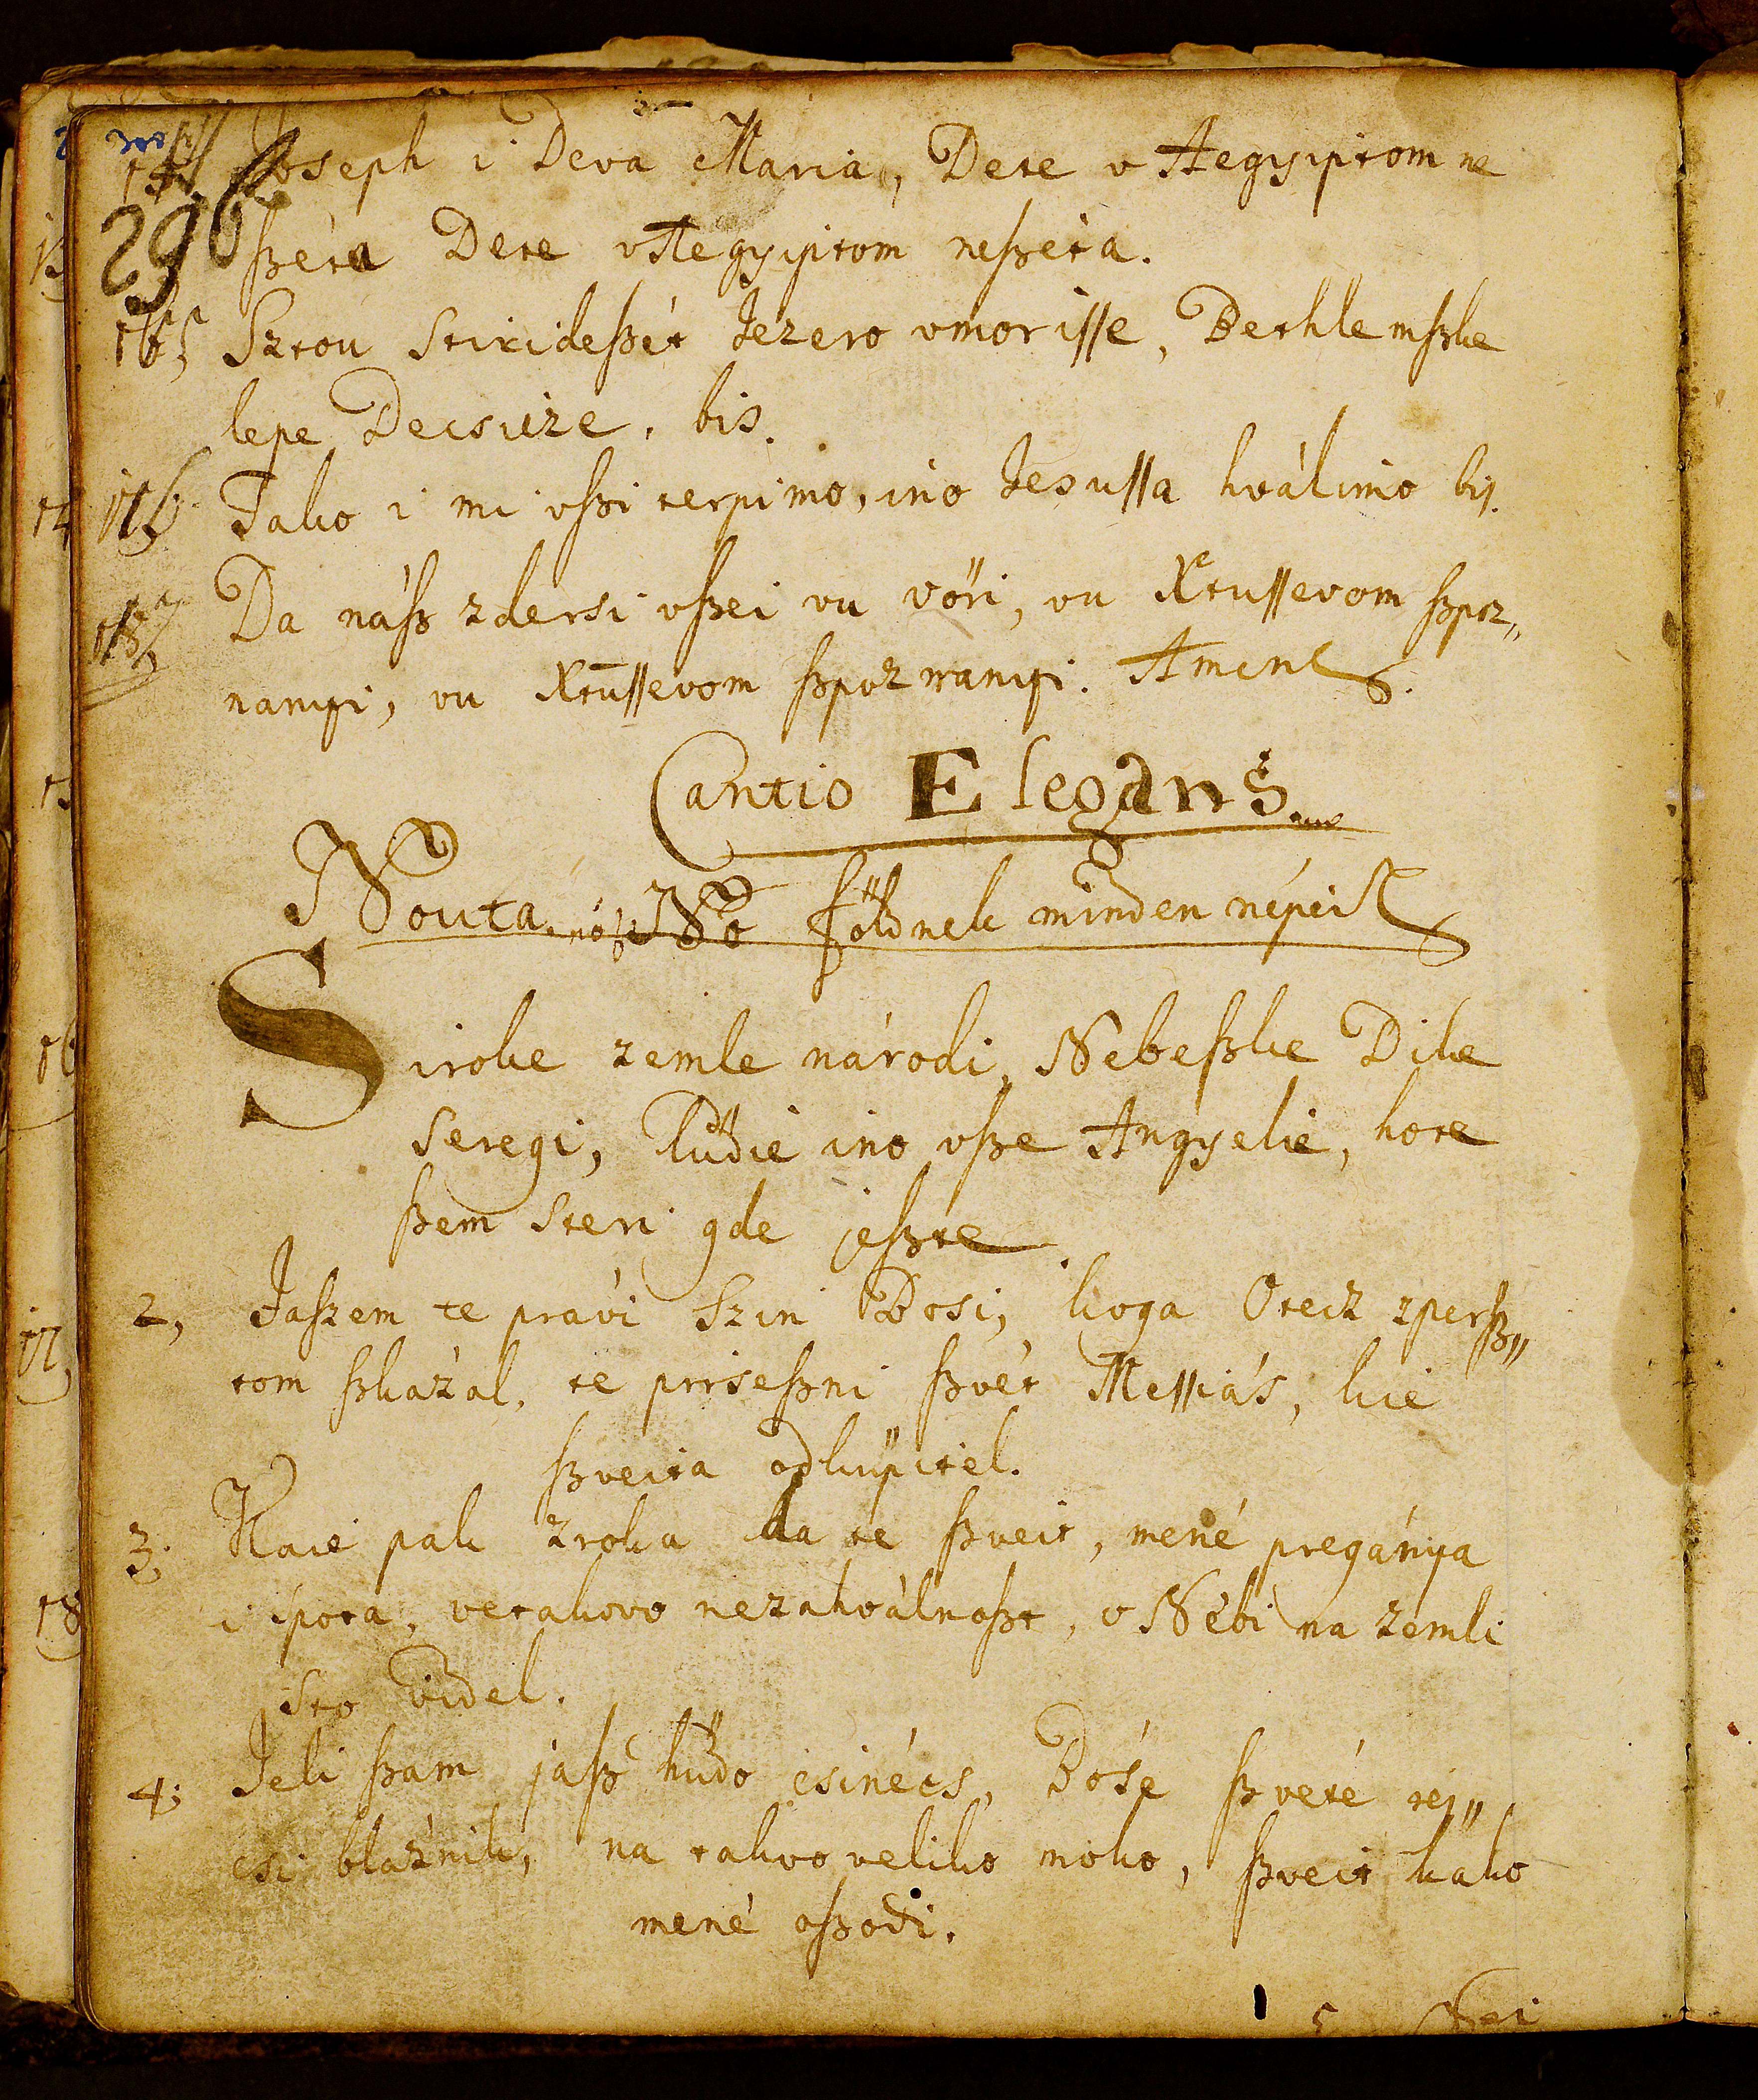 296
Joseph i Deva Maria, Dete v Aegyiptom ne
ßéta Dete v Aegyiptom neßeta.
Sztou stirideßét Jezero vmorisse, Bethlemßke
lepe Decsicze, bis.
Tako i mi vßi terpimo, ino Jesussa hválimo bis.
Da náß zdersi vßei vu völi, vu Xtussevom ßpoz„
nanyi, vu Xtussevom ßpoznanyi. Amen
Cantio Elegans
Nouta Nó földnek minden népei
Siroke zemle národi, Nebeßke Dike
seregi, lüdie ino vße Angyelie, hote
ßem steri gde jeßte.
2, Jaszem te právi Szin Bosi, koga Otecz zperß„
tom ßkázal, te priseßni ßvét Messiás, kie
ßveita odküpitel.
3; Kaie pak zroka da te ßveit, mené pregánya
i ípota, vetakovo nezahválnoßt, v Nébi na zemli
sto videl.
4; Jeli ßam jaß hüdo csinécs, Bóse ßveté réj„
csi bláznik, na takvo veliko moko, ßveit kako
mené oßodi.
5 Nei